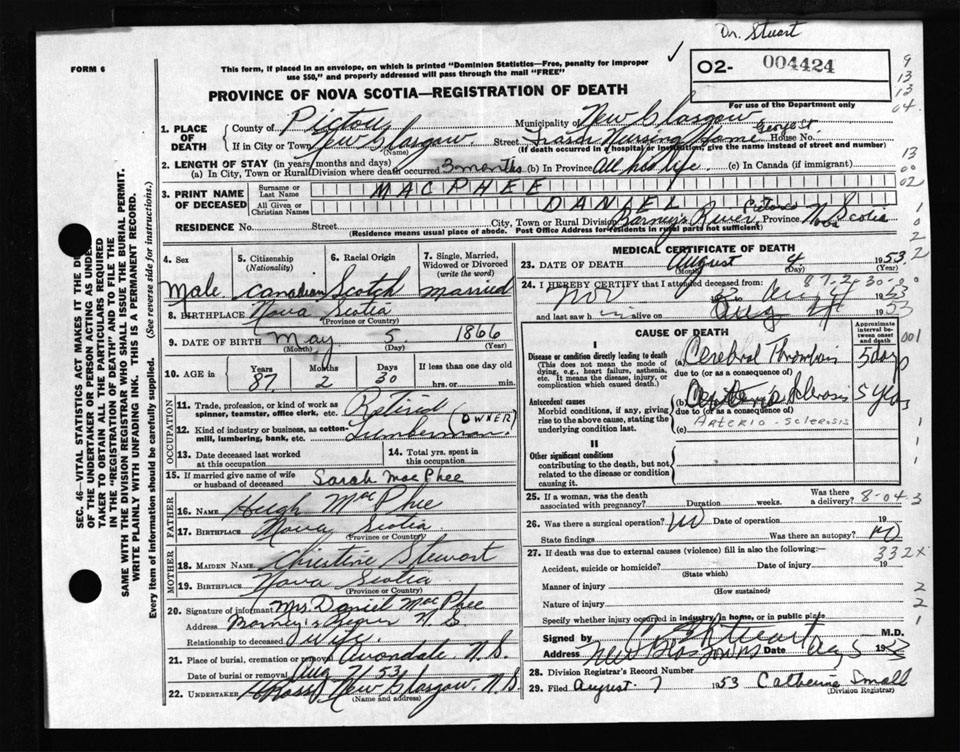 Dr. Stuart
FORM 6
This form, if placed in an envelope, on which is printed "Dominion Statistics—Free, penalty for improper
use $50," and properly addressed will pass through the mail "FREE"
02- 004424
For use of the Department only
PROVINCE OF NOVA SCOTIA—REGISTRATION OF DEATH
9
13
13
04
1. PLACE OF DEATH
County of Pictou Municipality of New Glasgow
If in City or Town New Glasgow Street Nursing Home George St. House No.
(Name) (If death occurred in a hospital or institution, give the name instead of street and number)
2. LENGTH OF STAY (in years, months and days)
(a) In City, Town or Rural Division where death occurred 3 months (b) In Province All his life (c) In Canada (if immigrant)
13
00
02
3. PRINT NAME OF DECEASED
Surname or Last Name MACPHEE
All Given or Christian Names DANIEL
RESIDENCE No. Street City, Town or Rural Division Barney's River Province Nova Scotia
(Residence means usual place of abode. Post Office Address for residents in rural parts not sufficient)
1
0
2
4. Sex
Male
5. Citizenship
(Nationality)
Canadian
6. Racial Origin
Scotch
7. Single, Married,
Widowed or Divorced
(write the word)
Married
8. BIRTHPLACE Nova Scotia
(Province or Country)
9. DATE OF BIRTH May 5 1866
(Month) (Day) (Year)
10. AGE in Years Months Days If less than one day old
87 2 30 hrs. or min.
OCCUPATION
11. Trade, profession, or kind of work as
spinner, teamster, office clerk, etc. Retired
12. Kind of industry or business, as cotton-
mill, lumbering, bank, etc. Lumberman (OWNER)
13. Date deceased last worked
at this occupation
14. Total yrs. spent in
this occupation
15. If married give name of wife
or husband of deceased Sarah MacPhee
FATHER
16. NAME Hugh MacPhee
17. BIRTHPLACE Nova Scotia
(Province or Country)
MOTHER
18. MAIDEN NAME Christine Stewart
19. BIRTHPLACE Nova Scotia
(Province or Country)
20. Signature of informant Mrs. Daniel MacPhee
Address Barney's River N.S.
Relationship to deceased Wife.
21. Place of burial, cremation or removal Avondale, N.S.
Date of burial or removal Aug 7/53
22. UNDERTAKER New Glasgow, N.S.
(Name and address)
MEDICAL CERTIFICATE OF DEATH
23. DATE OF DEATH August 4 1953
(Month) (Day) (Year)
87-2-30-3
24. I HEREBY CERTIFY that I attended deceased from:
Nov Aug 4 1953
and last saw h im alive on Aug 4 1953
CAUSE OF DEATH
Approximate
interval be-
tween onset
and death
I
Disease or condition directly leading to death
(This does not mean the mode of
dying, e.g., heart failure, asthenia,
etc. It means the disease, injury, or
complication which caused death.)
(a) Cerebral Thrombosis 5 days
due to (or as a consequence of)
Antecedent causes
Morbid conditions, if any, giving
rise to the above cause, stating the
underlying condition last.
(b) Sclerosis 5 yrs
due to (or as a consequence of)
(c) Arterio-sclerosis
II
Other significant conditions
contributing to the death, but not
related to the disease or condition
causing it.
25. If a woman, was the death
associated with pregnancy? Duration weeks. Was there
a delivery?
8-04 3
26. Was there a surgical operation? No Date of operation 19
State findings Was there an autopsy? No
27. If death was due to external causes (violence) fill in also the following:—
332X
Accident, suicide or homicide? Date of injury 19
(State which)
Manner of injury
(How sustained)
Nature of injury
Specify whether injury occurred in industry, in home, or in public place
Signed by Stuart M.D.
Address New Glasgow NS Date Aug 5 19
28. Division Registrar's Record Number
29. Filed August 7 1953 Catherine Small
(Division Registrar)
SEC. 46—VITAL STATISTICS ACT MAKES IT THE
OF THE UNDERTAKER OR PERSON ACTING AS UNDER-
TAKER TO OBTAIN ALL THE PARTICULARS REQUIRED
IN THE "REGISTRATION OF DEATH" AND TO FILE THE
SAME WITH THE DIVISION REGISTRAR WHO SHALL ISSUE THE BURIAL PERMIT.
WRITE PLAINLY WITH UNFADING INK. THIS IS A PERMANENT RECORD.
Every item of information should be carefully supplied. (See reverse side for instructions.)